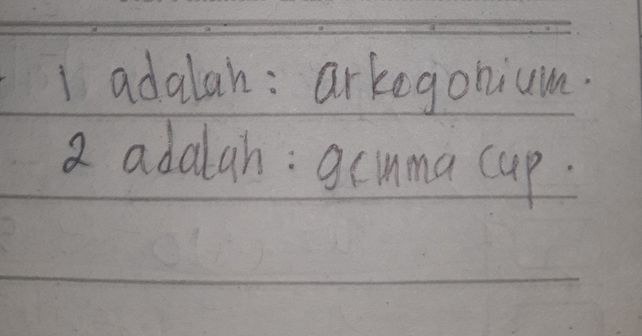 1 adalah : arkegonium.
2 adalah : gemma cup.